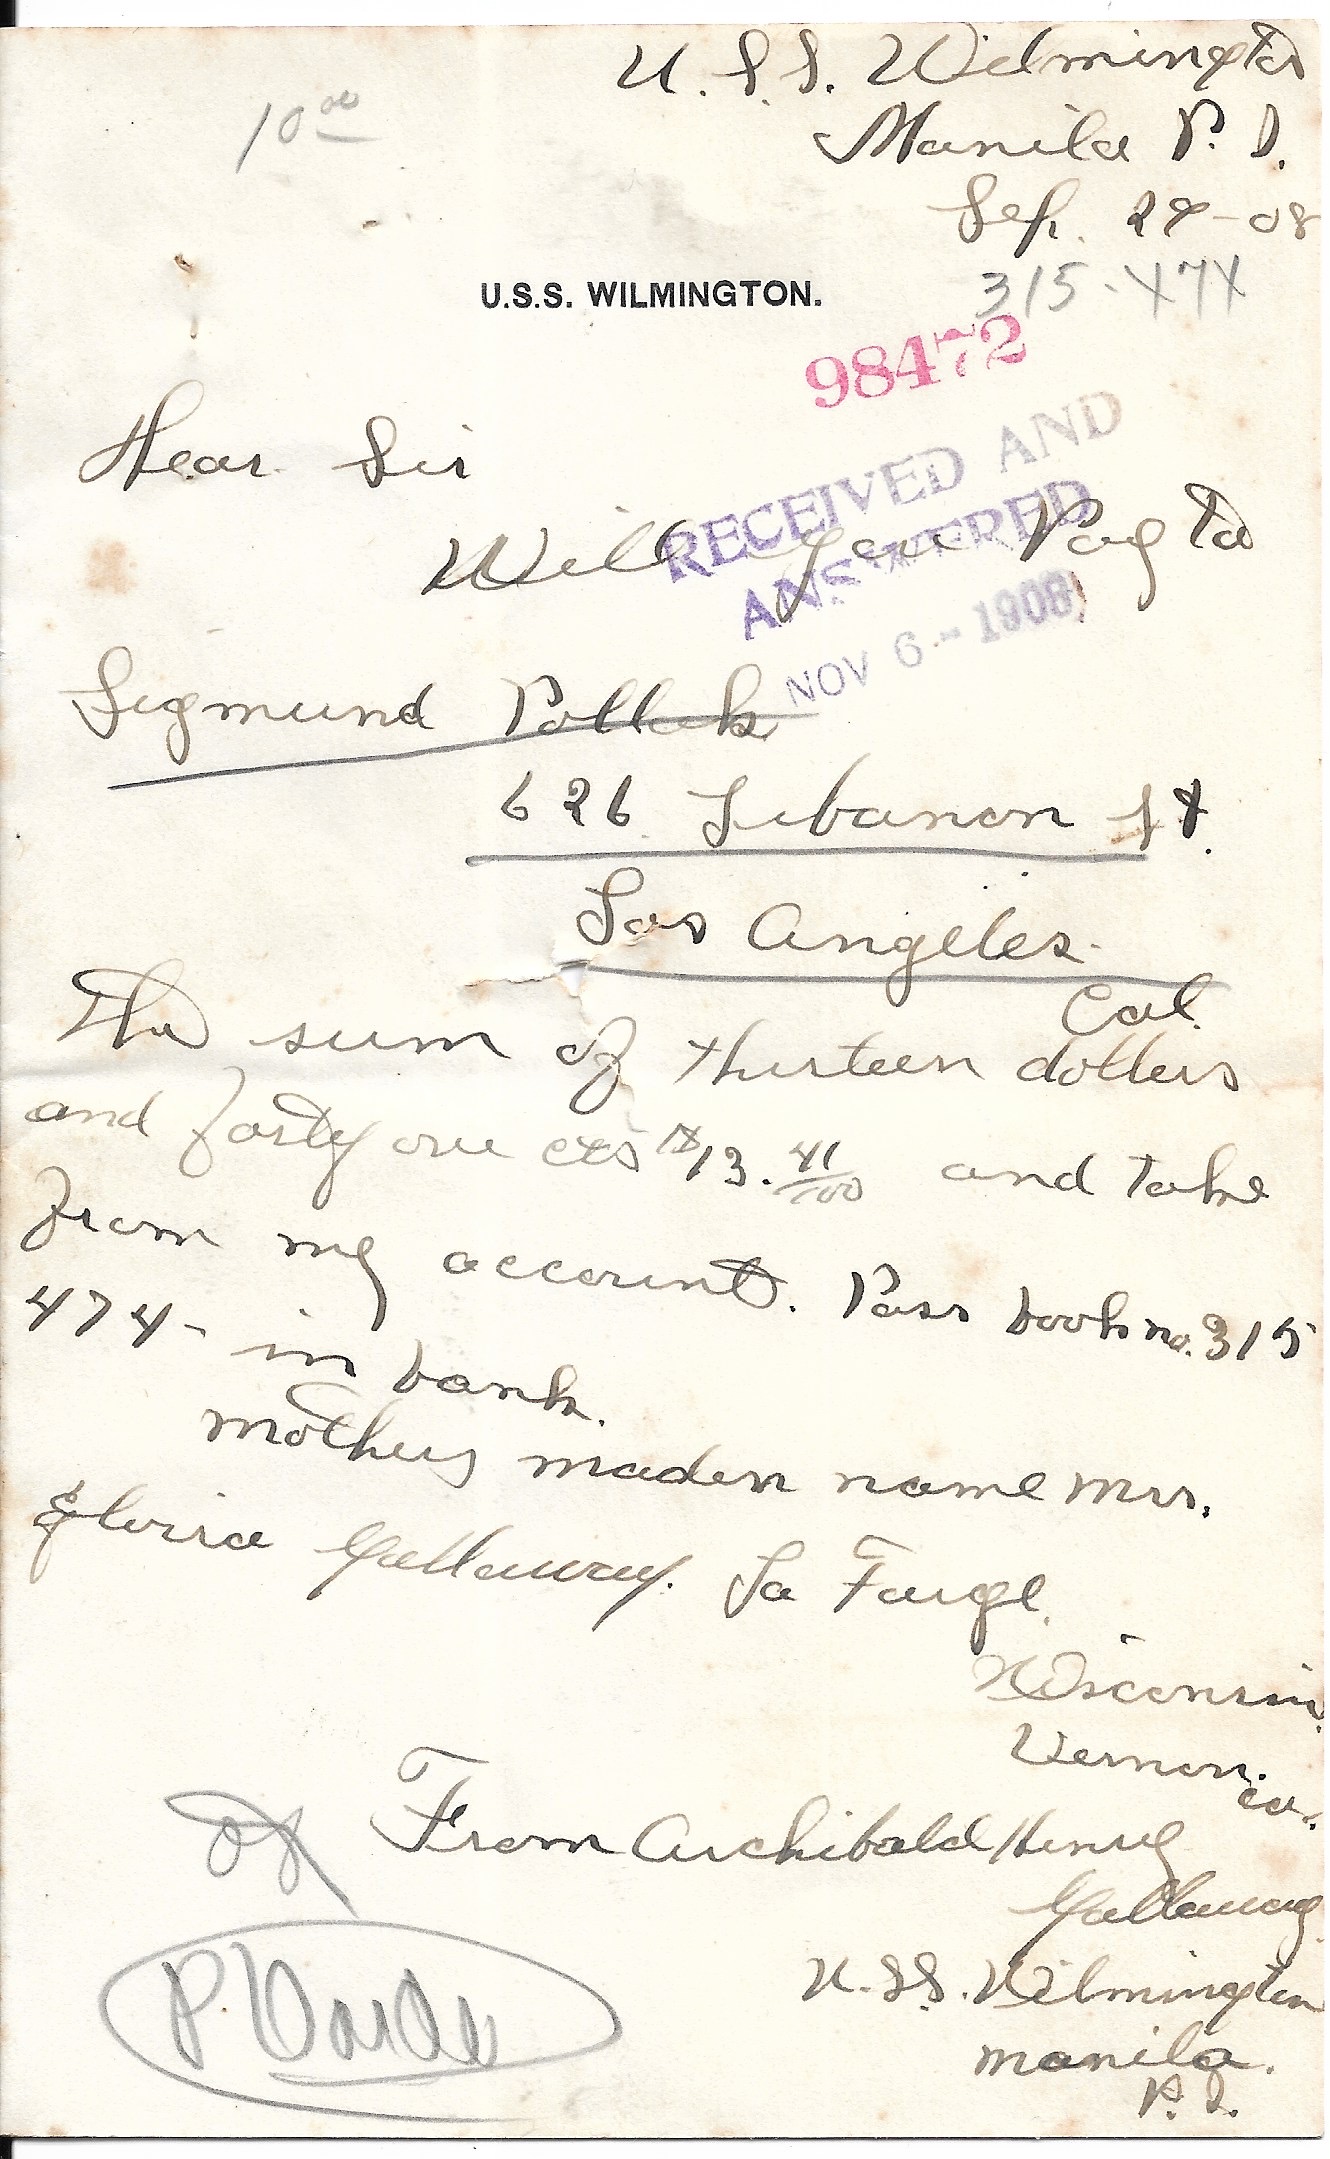 U.S.S. Wilmington
Manila P.I.
10 00
Sep. 24-08
315-474
U.S.S. WILMINGTON.
98472
Dear Sir
RECEIVED AND
ANSWERED
NOV 6 - 1908
Will you Pay to
Sigmund Pollak
626 Lebanon St.
Los Angeles.
Cal.
The sum of thirteen dollers
and forty one cts $13.41/100 and take
from my account. Pass book no. 315
474- in bank.
mothers maden name Mrs.
Gallaway. La Farge.
Wisconsin.
Vernon.
co.
From Archibald Henry
Gallaway
U.S.S. Wilmington
manila.
P.I.